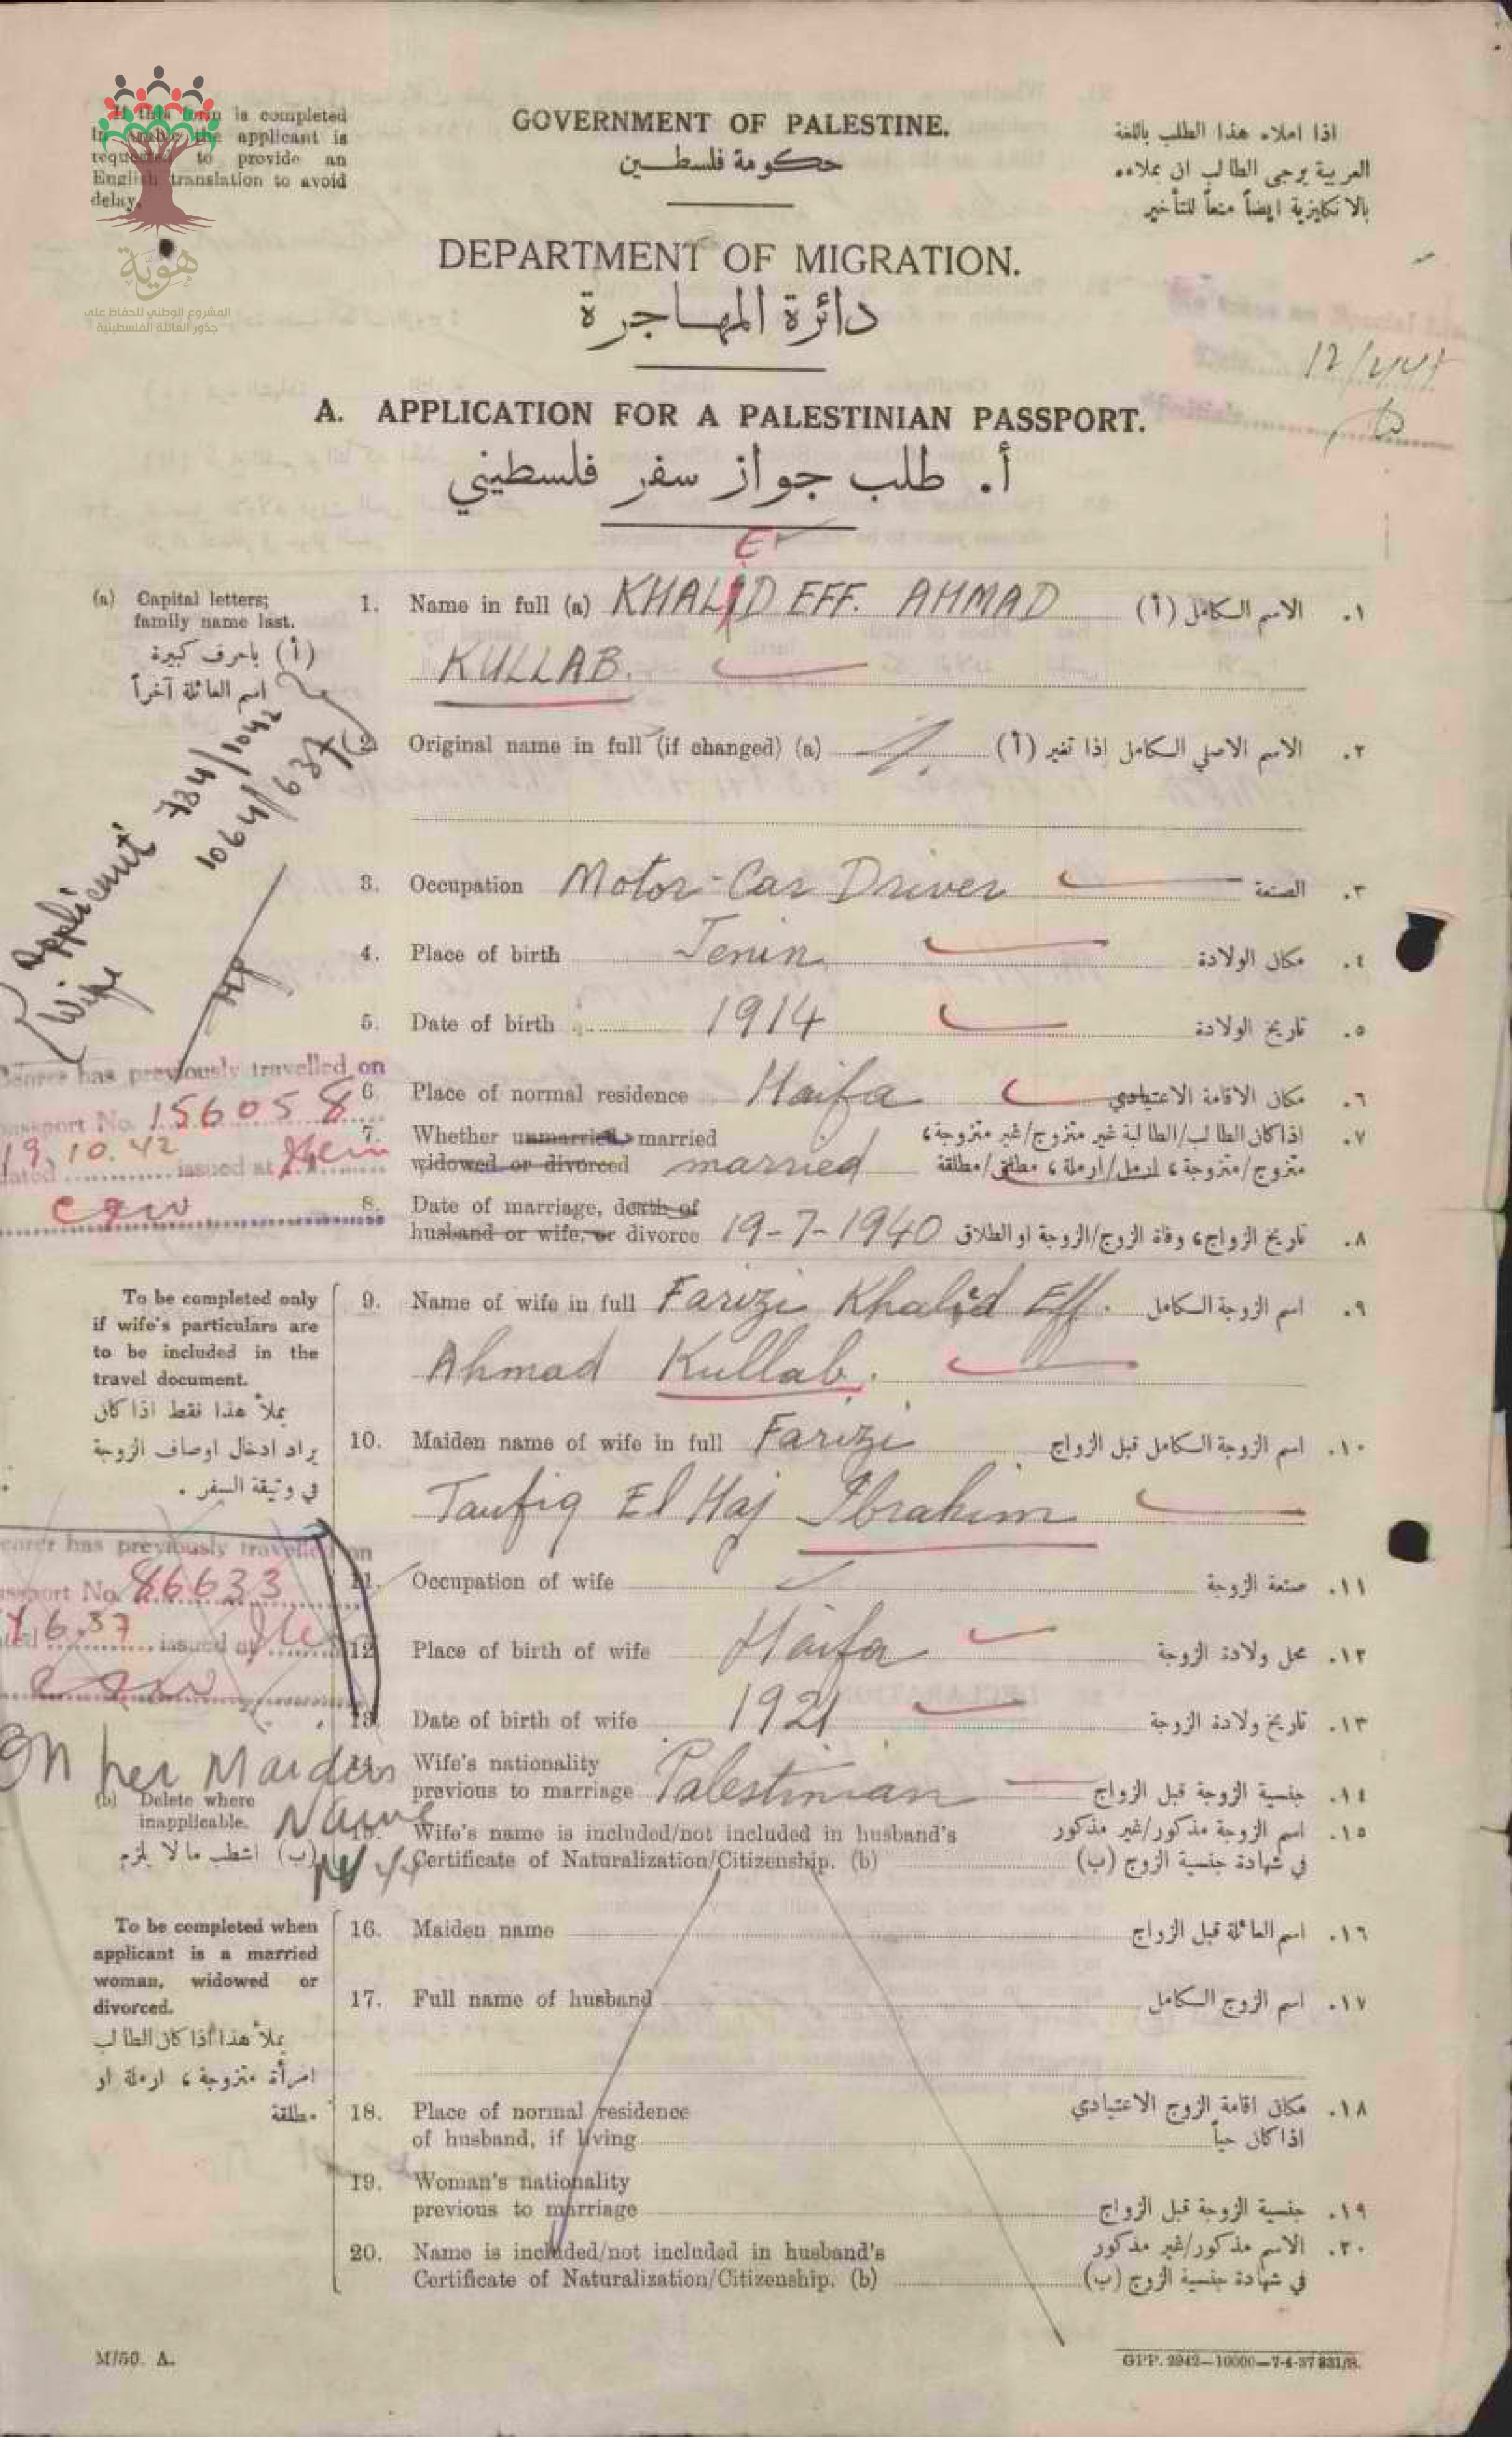 If this form is completed
in Arabic the applicant is
requested to provide an
English translation to avoid
delay.
هوية
المشروع الوطني للحفاظ على
جذور العائلة الفلسطينية
GOVERNMENT OF PALESTINE.
حكومة فلسطين
اذا املاء هذا الطلب باللغة
العربية يرجى الطالب ان يملاءه
بالانكليزية ايضاً منعاً للتأخير
DEPARTMENT OF MIGRATION.
دائرة المهاجرة
A. APPLICATION FOR A PALESTINIAN PASSPORT.
أ. طلب جواز سفر فلسطيني
(a) Capital letters;
family name last.
(أ) باحرف كبيرة
اسم العائلة آخراً
1. Name in full (a) KHALID EFF. AHMAD الاسم الكامل (أ) ١.
KULLAB.
2. Original name in full (if changed) (a) الاسم الاصلي الكامل اذا تغير (أ) ٢.
Applicant 734/1042
Wife 1064/637
3. Occupation Motor-Car Driver الصنعة ٣.
4. Place of birth Jenin مكان الولادة ٤.
5. Date of birth 1914 تاريخ الولادة ٥.
Bearer has previously travelled on
Passport No. 156058
19.10.42 issued at
6. Place of normal residence Haifa مكان الاقامة الاعتيادي ٦.
7. Whether unmarried, married اذا كان الطالب/الطالبة غير متزوج/غير متزوجة،
widowed or divorced married متزوج/متزوجة، ارمل/ارملة، مطلق/مطلقة ٧.
8. Date of marriage, death of
husband or wife, or divorce 19-7-1940 تاريخ الزواج، وفاة الزوج/الزوجة او الطلاق ٨.
To be completed only
if wife's particulars are
to be included in the
travel document.
يملأ هذا فقط اذا كان
يراد ادخال اوصاف الزوجة
في وثيقة السفر .
9. Name of wife in full Farizi Khalid Eff. اسم الزوجة الكامل ٩.
Ahmad Kullab.
10. Maiden name of wife in full Farizi اسم الزوجة الكامل قبل الزواج ١٠.
Taufiq El Haj Ibrahim
Bearer has previously travelled on
Passport No. 86633
6.37 issued at
On her Maiden
Name
11. Occupation of wife صنعة الزوجة ١١.
12. Place of birth of wife Haifa محل ولادة الزوجة ١٢.
13. Date of birth of wife 1921 تاريخ ولادة الزوجة ١٣.
14. Wife's nationality
previous to marriage Palestinian جنسية الزوجة قبل الزواج ١٤.
(b) Delete where
inapplicable.
(ب) اشطب ما لا يلزم
15. Wife's name is included/not included in husband's اسم الزوجة مذكور/غير مذكور ١٥.
Certificate of Naturalization/Citizenship. (b) في شهادة جنسية الزوج (ب)
To be completed when
applicant is a married
woman, widowed or
divorced.
يملأ هذا اذا كان الطالب
امرأة متزوجة، ارملة او
مطلقة
16. Maiden name اسم العائلة قبل الزواج ١٦.
17. Full name of husband اسم الزوج الكامل ١٧.
18. Place of normal residence مكان اقامة الزوج الاعتيادي ١٨.
of husband, if living اذا كان حياً
19. Woman's nationality
previous to marriage جنسية الزوجة قبل الزواج ١٩.
20. Name is included/not included in husband's الاسم مذكور/غير مذكور ٢٠.
Certificate of Naturalization/Citizenship. (b) في شهادة جنسية الزوج (ب)
M/50. A.
GPP. 2942—10000—7-4-37 831/S.